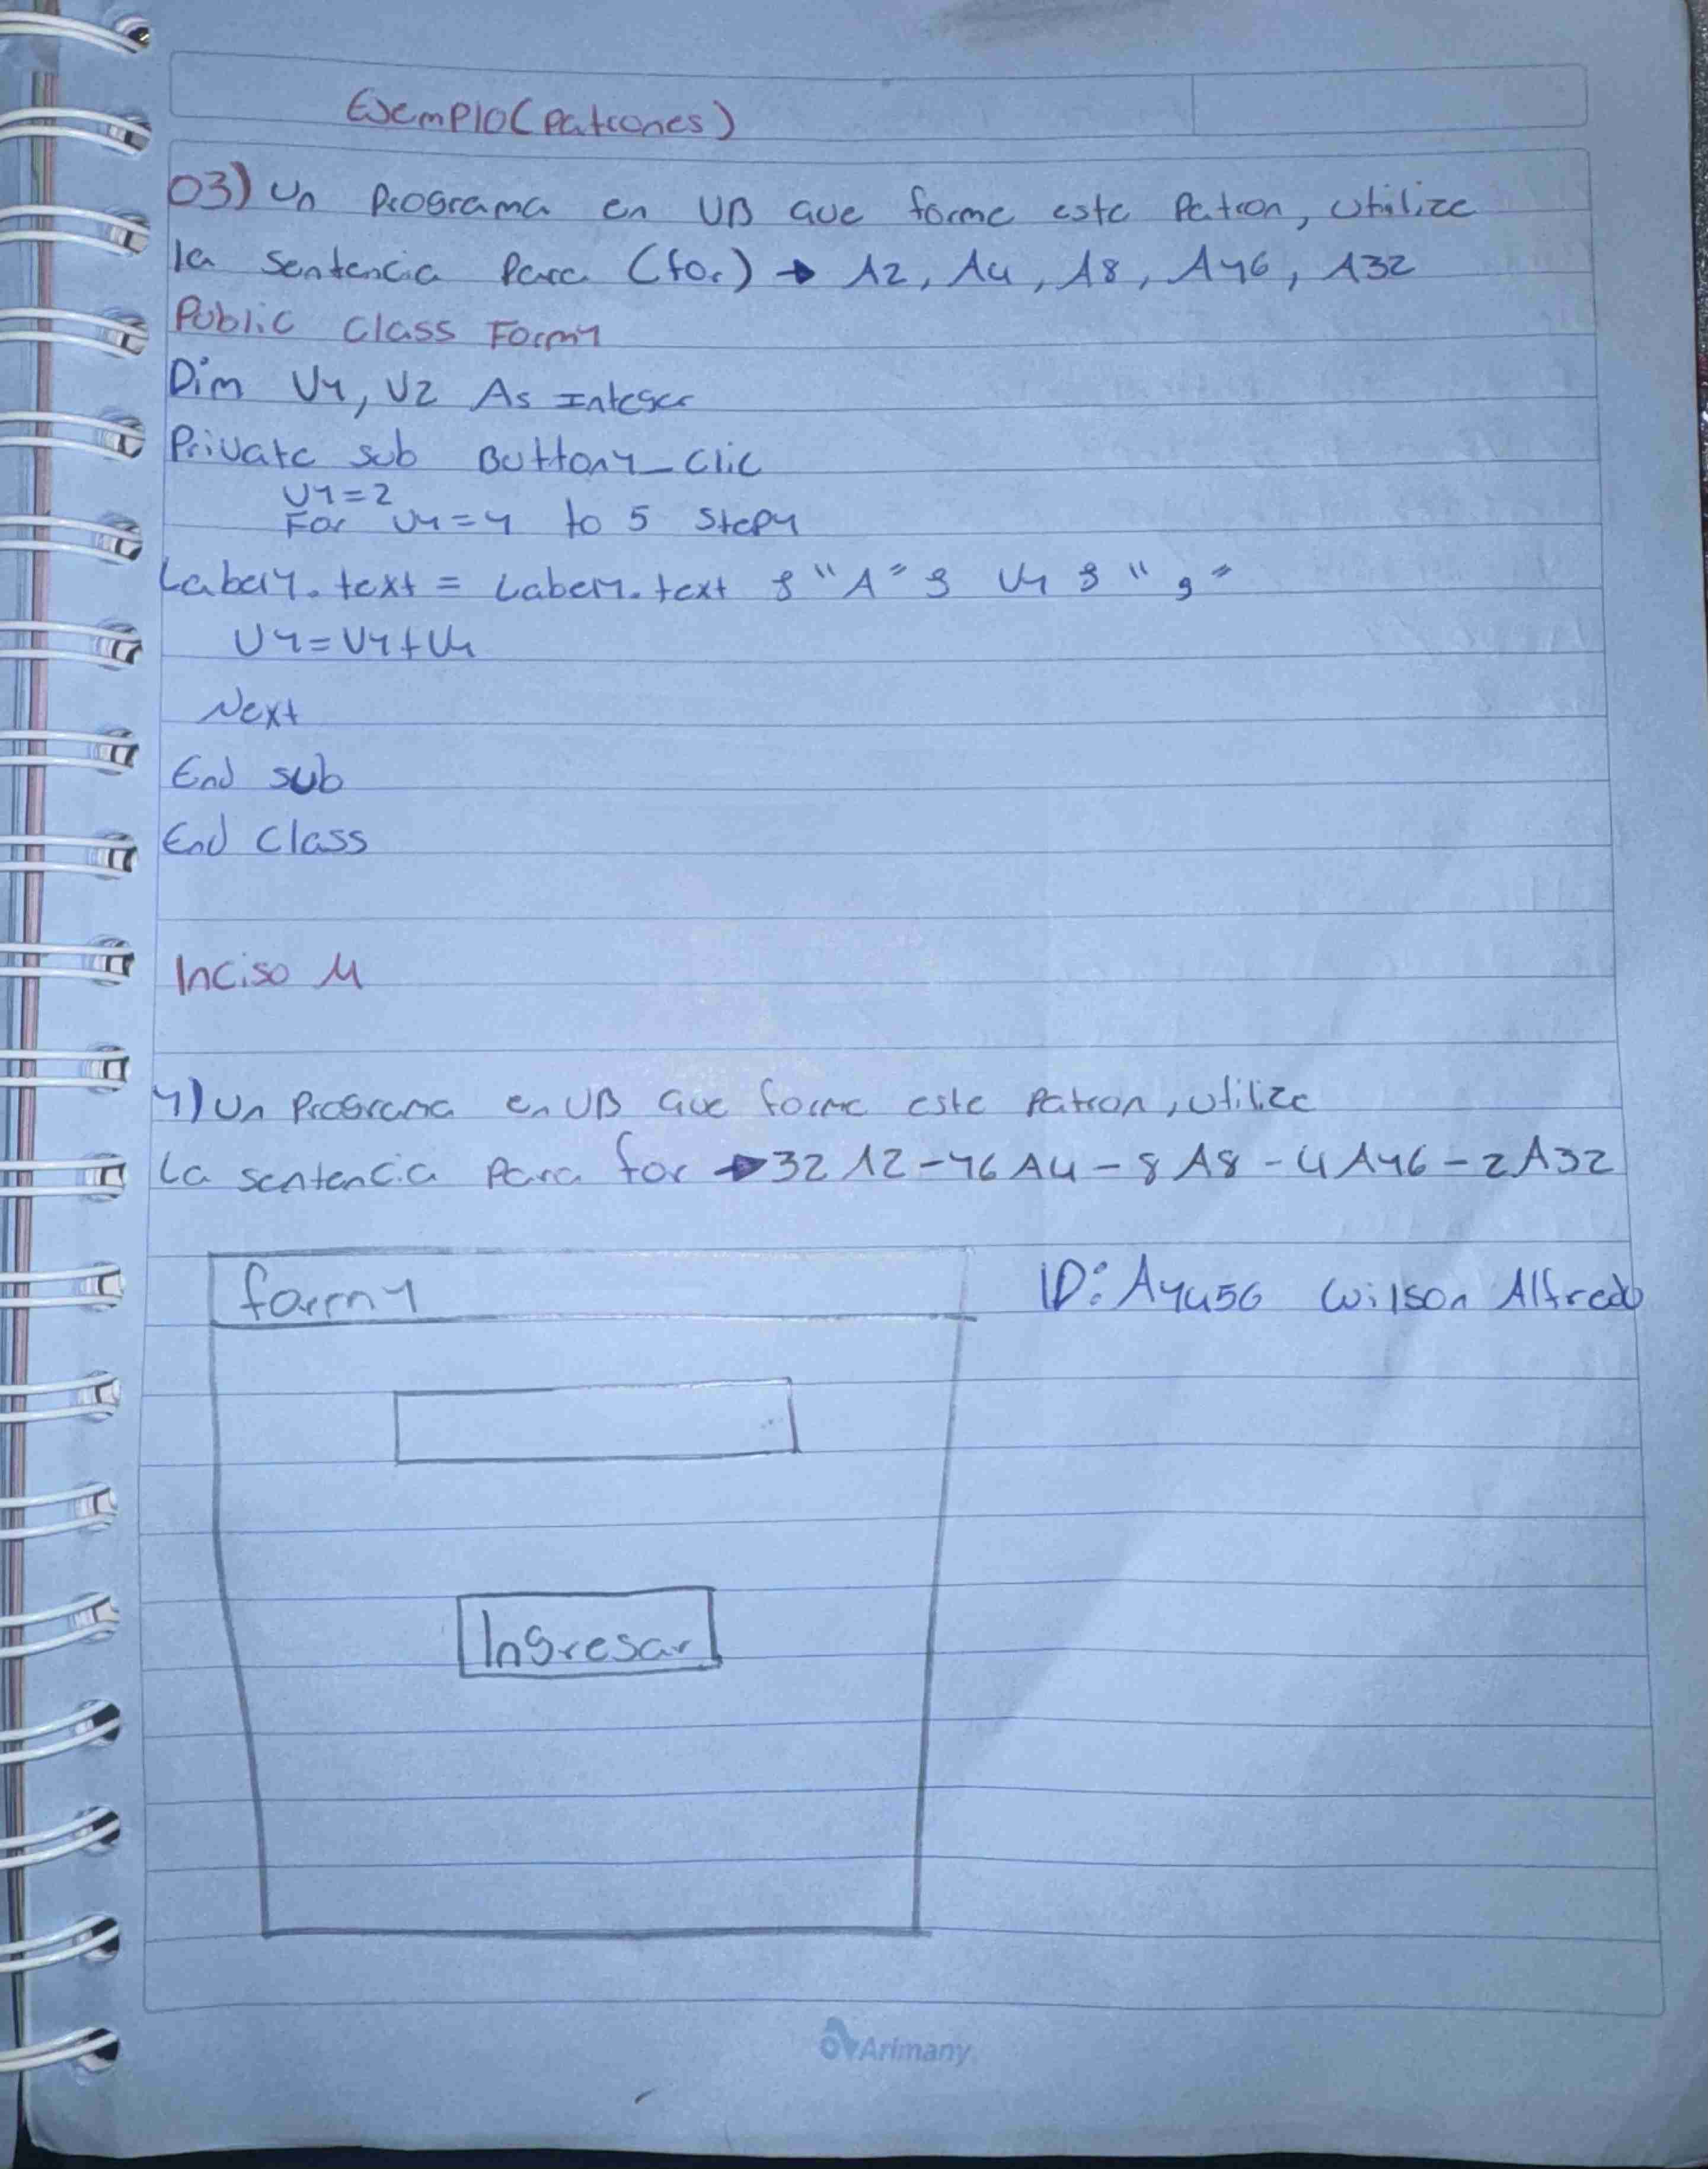 Ejemplo (Patrones)
03) Un Programa en VB que forme este Patron, utilize
la sentencia Para (for) → A2, A4, A8, A16, A32
Public Class Form1
Dim V1, V2 As Integer
Private sub Button1_Clic
V1=2
For V1=1 to 5 Step1
Label1.text = Label1.text & "A" & V1 & ","
V1=V1+V1
Next
End sub
End Class
Inciso M
1) Un Programa en VB que forme este Patron, utilize
La sentencia Para for → 32A2-16A4-8A8-4A16-2A32
form1
ID: A1456 Wilson Alfredo
Ingresar
Arimany